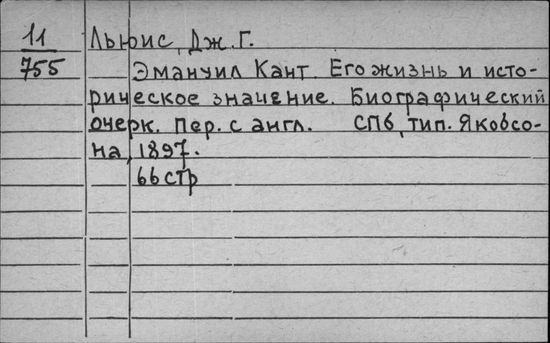 11 Льюис, Дж. Г.
755 Эмануил Кант. Его жизнь и исто-
рическое значение. Биографический
очерк. Пер. с англ. СПб, тип. Якобсо-
на, 1897.
66 стр